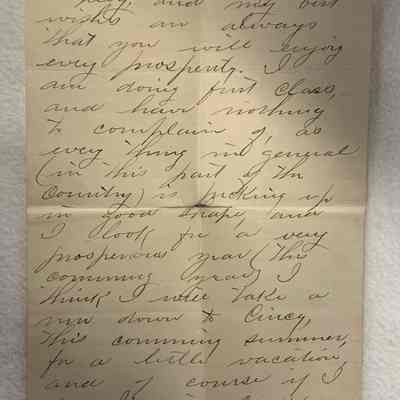 and my best
wishes are always
that you will enjoy
every prosperity. I
am doing first class,
and have nothing
to complain of, as
every thing in general
(in this part of the
Country) is picking up
in good shape, and
I look for a very
prosperous year (the
comming year) I
think I will take a
run down to Cincy,
this comming summer,
for a little vacation,
and of course if I